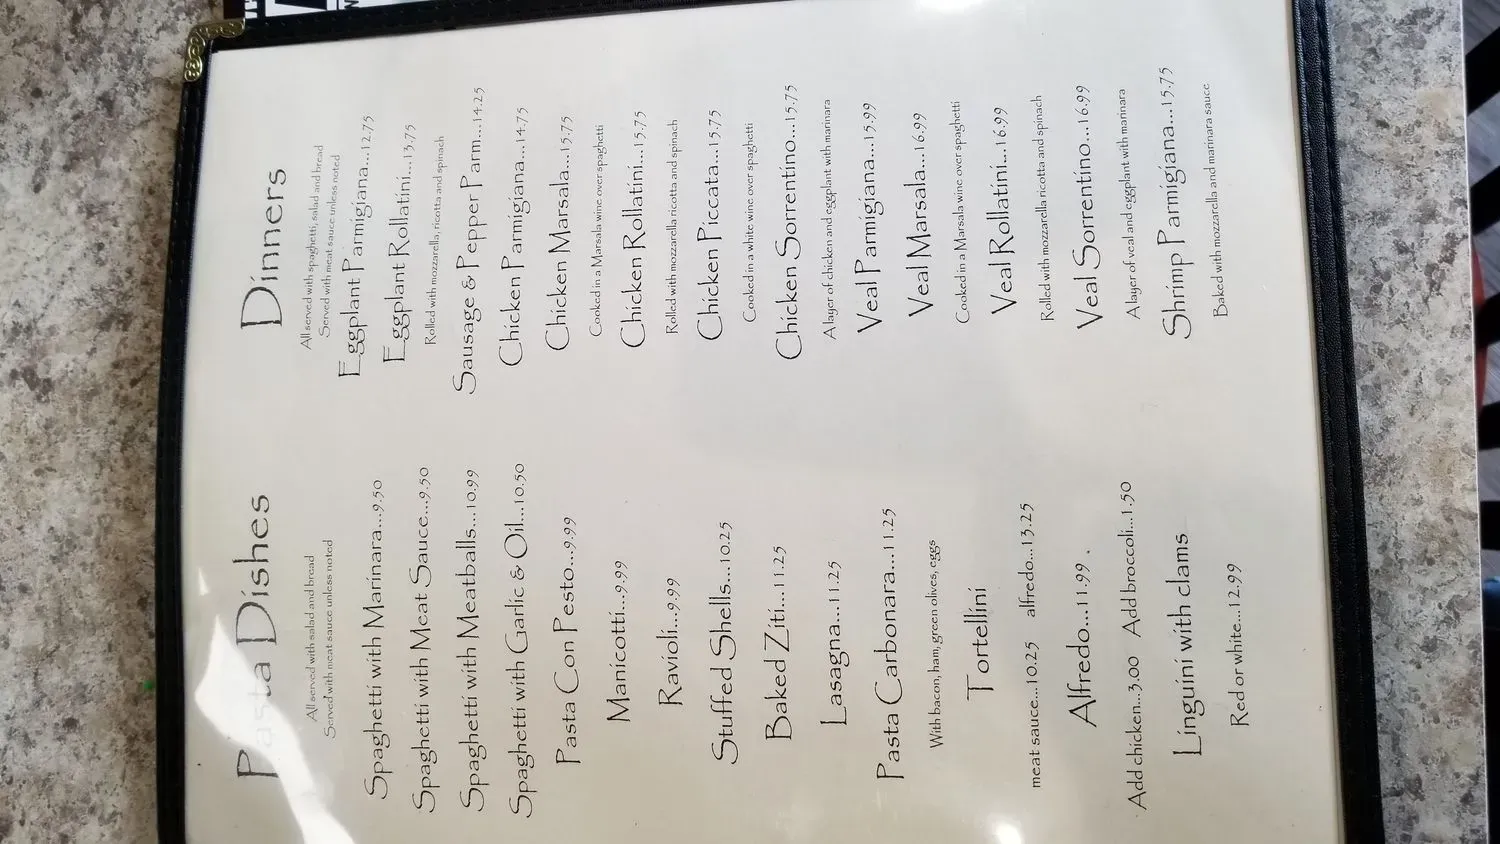 Pasta Dishes
All served with salad and bread
Served with meat sauce unless noted
Spaghetti with Marinara...9.50
Spaghetti with Meat Sauce...9.50
Spaghetti with Meatballs...10.99
Spaghetti with Garlic & Oil...10.50
Pasta Con Pesto...9.99
Manicotti...9.99
Ravioli...9.99
Stuffed Shells...10.25
Baked Ziti...11.25
Lasagna...11.25
Pasta Carbonara...11.25
With bacon, ham, green olives, eggs
Tortellini
meat sauce...10.25 alfredo...13.25
Alfredo...11.99 .
Add chicken...3.00 Add broccoli...1.50
Linguini with clams
Red or white...12.99
Dinners
All served with spaghetti, salad and bread
Served with meat sauce unless noted
Eggplant Parmigiana...12.75
Eggplant Rollatini...13.75
Rolled with mozzarella, ricotta and spinach
Sausage & Pepper Parm...14.25
Chicken Parmigiana...14.75
Chicken Marsala...15.75
Cooked in a Marsala wine over spaghetti
Chicken Rollatini...15.75
Rolled with mozzarella ricotta and spinach
Chicken Piccata...15.75
Cooked in a white wine over spaghetti
Chicken Sorrentino...15.75
A layer of chicken and eggplant with marinara
Veal Parmigiana...15.99
Veal Marsala...16.99
Cooked in a Marsala wine over spaghetti
Veal Rollatini...16.99
Rolled with mozzarella ricotta and spinach
Veal Sorrentino...16.99
A layer of veal and eggplant with marinara
Shrimp Parmigiana...15.75
Baked with mozzarella and marinara sauce